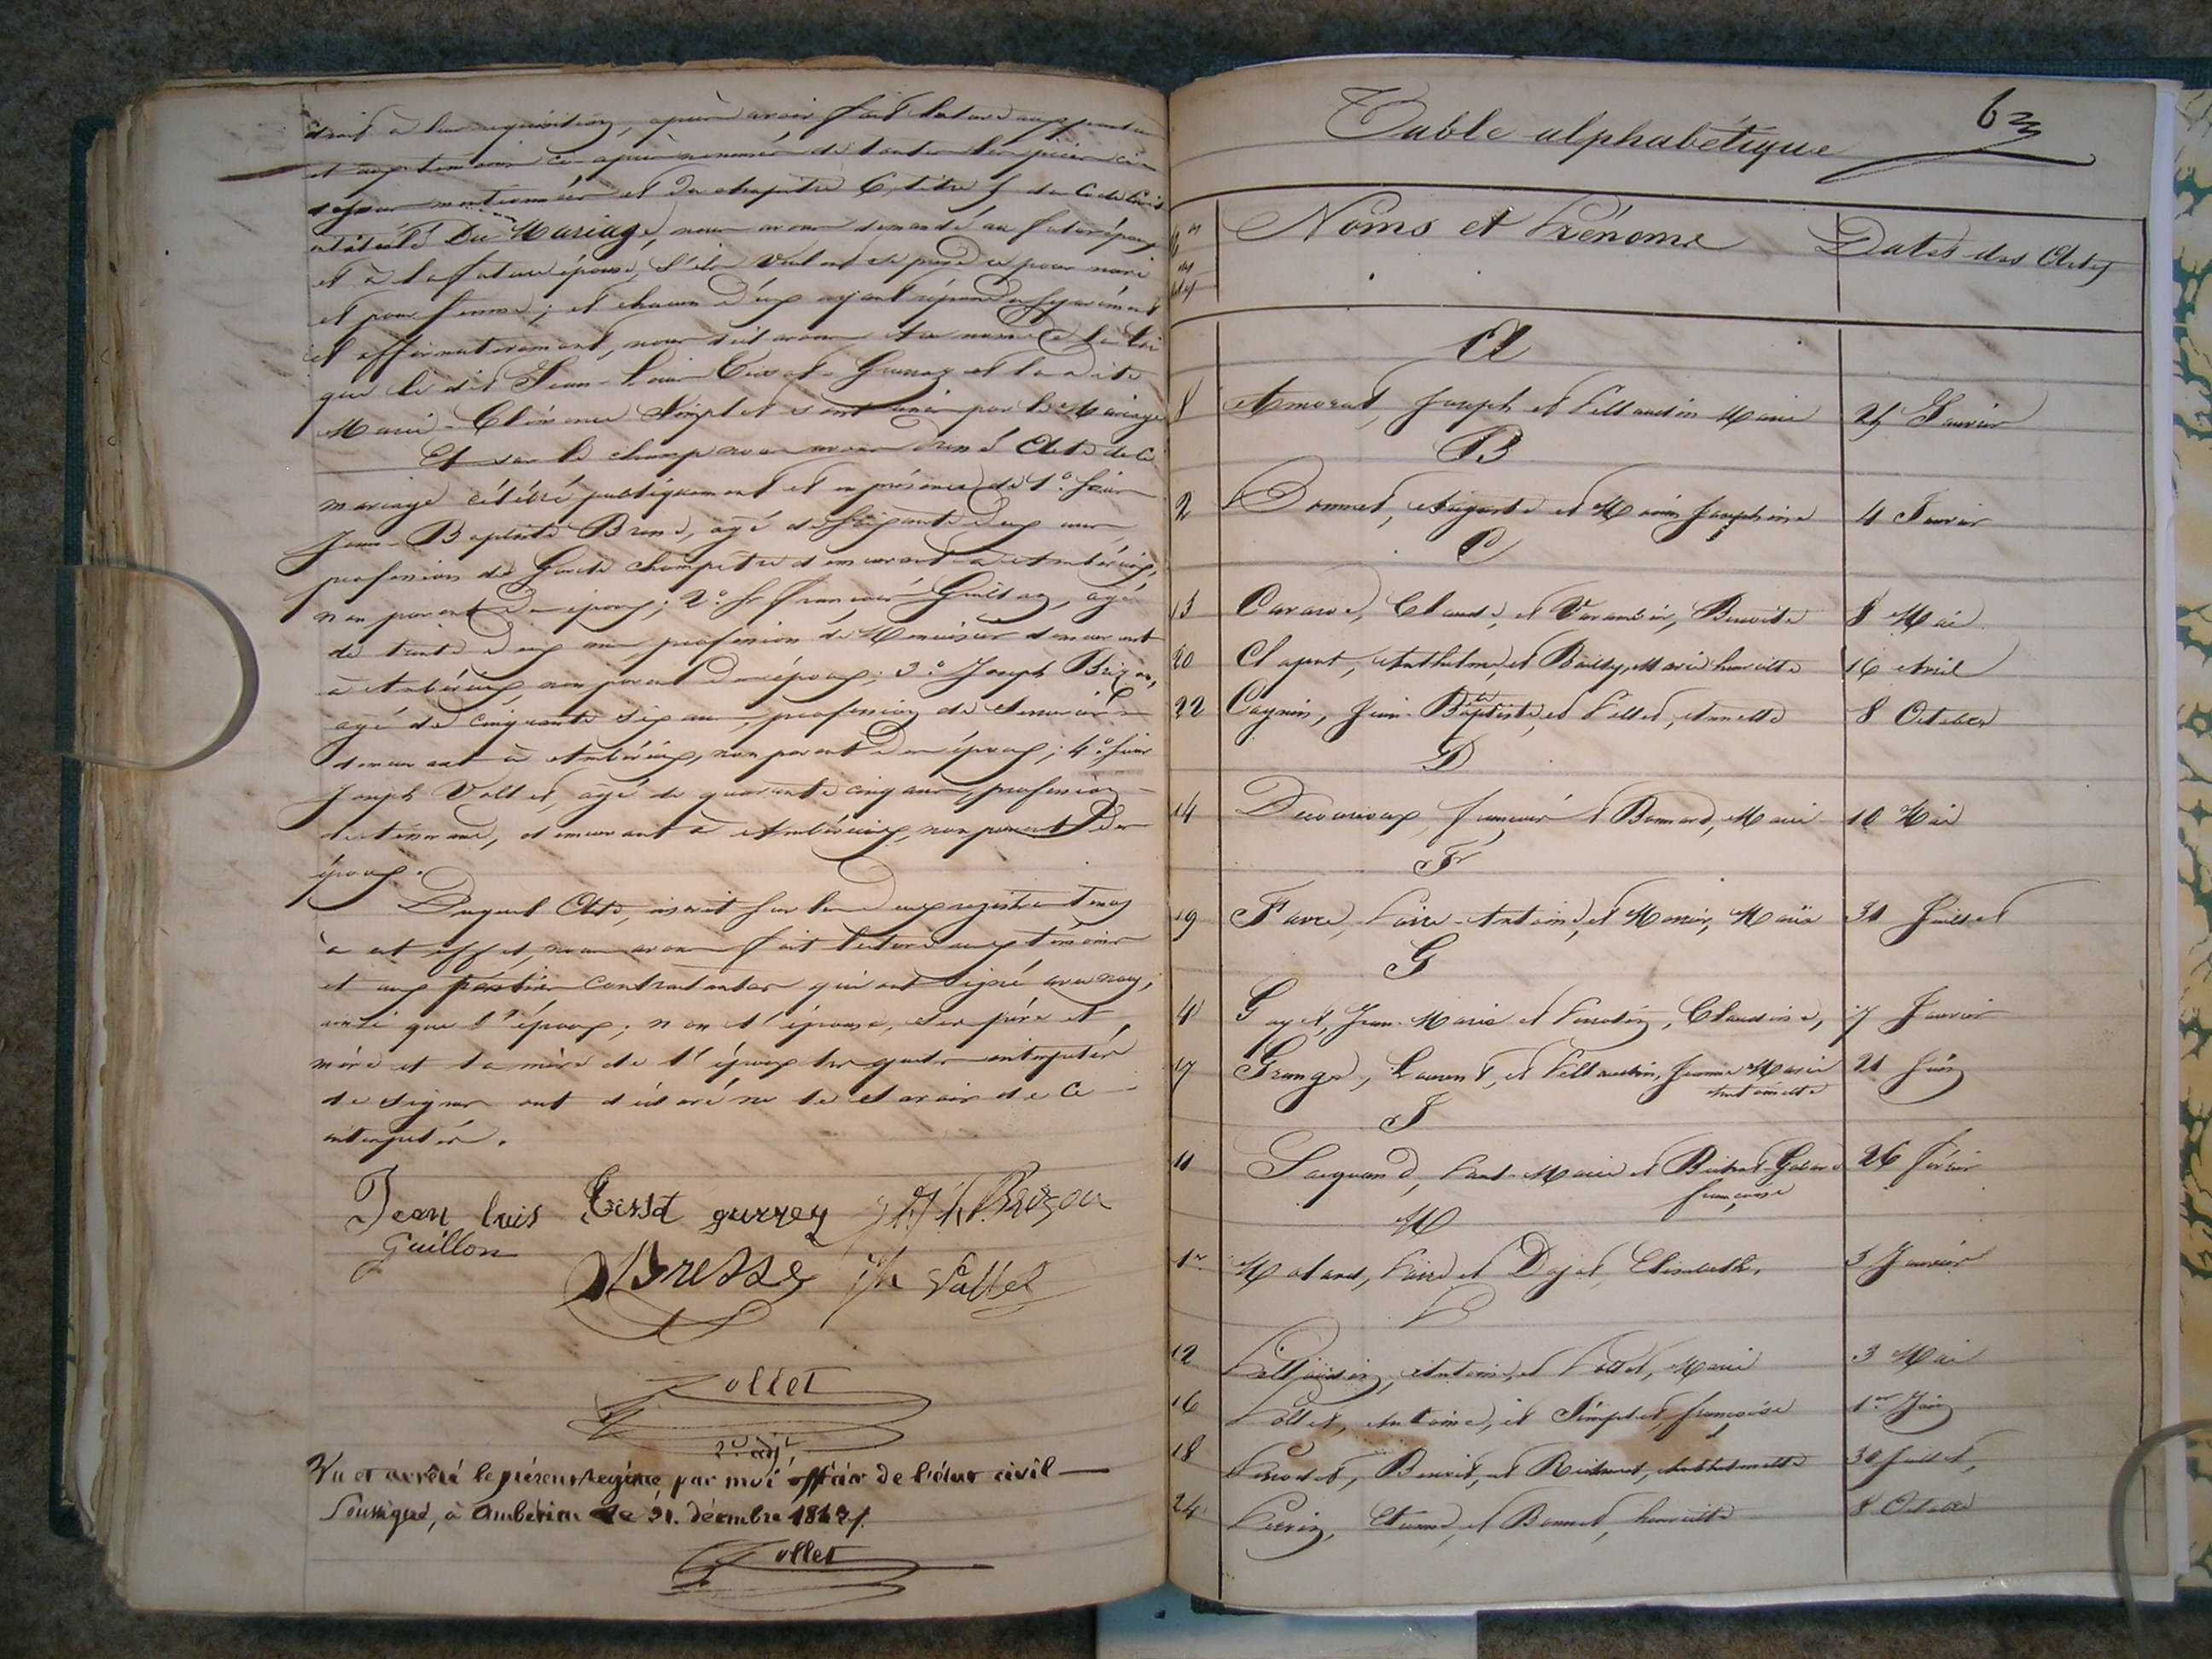 droit à leur réquisition, après avoir fait lecture aux parties
et aux témoins ci-après nommés de toutes les pièces ci-
dessus mentionnées et du chapitre 6, titre 5 du Code Civil
intitulé Du Mariage, nous avons demandé au futur époux
et à la future épouse, s'ils veulent se prendre pour mari
et pour femme; et chacun d'eux ayant répondu séparément
et affirmativement, nous déclarons au nom de la loi
que le dit Jean-Louis Tissot-Guerraz et la dite
Marie-Clémence Simplet sont unis par le Mariage
Et sur le champ nous avons dressé Acte de ce
mariage célébré publiquement et en présence de 1° Sieur
Jean-Baptiste Bresse, âgé de soixante deux ans,
profession de Garde champêtre demeurant à Ambérieux,
non parent des époux; 2° Sr François Guillon, âgé
de trente deux ans profession de Menuisier demeurant
à Ambérieux, non parent des époux; 3° Joseph Brizon,
âgé de cinquante six ans, profession de Serrurier
demeurant à Ambérieux, non parent des époux; 4° Sieur
Joseph Vallet, âgé de quarante cinq ans, profession
de tisserand, demeurant à Ambérieux, non parent des
époux.
Duquel Acte, inscrit sur les deux registres tenus
à cet effet, nous avons fait lecture aux témoins
et aux parties contractantes qui ont signé avec nous,
ainsi que l'époux; non l'épouse, ses père et
mère et la mère de l'époux lesquels interpellés
de signer ont déclaré ne le savoir de ce
interpellés.
Jean luis Tissot guerrey Brizon
Guillon
Bresse j/h Vallet
Tollet
2e adjt
Vu et arrêté le présent Registre, par moi officier de l'état civil
soussigné, à Ambérieu le 31. décembre 1847
Tollet
Table alphabétique 63
Nos des actes Noms et Prénoms Dates des Actes
A
8 Amorat, Joseph et Pellaudin Marie 25 Janvier
B
2 Bonnet, Auguste et Morin Josephine 4 Janvier
C
13 Caravad, Claude, et Varambier, Benoite 8 Mai
20 Clapet, Anthelme, et Bailly, Marie henriette 16 Avril
22 Cagnin, Jean-Baptiste, et Pollet, Annette 8 Octobre
D
14 Decourioux, françois et Bonnard, Marie 10 Mai
F
19 Favre, Pierre-Antoine, et Monier, Marie 31 Juillet
G
4 Gayet, Jean-Marie et Perrodin, Claudine, 7 Janvier
17 Grange, Laurent, et Pellaudin, Jeanne Marie Antoinette 21 Juin
J
11 Jacquand, Paul-Marie et Bichat-Gobard françoise 26 février
M
1er Molard, Pierre et Dejat, Elisabeth. 3 Janvier
P
12 Pellaudin, Antoine, et Pollet, Marie 3 Mai
16 Pollet, Antoine, et Simplet, françoise 1er Juin
18 Perrodet, Benoit, et Richerot, Anthelmette 30 Juillet,
24 Perrin, Etienne, et Bonnet, henriette 8 Octobre